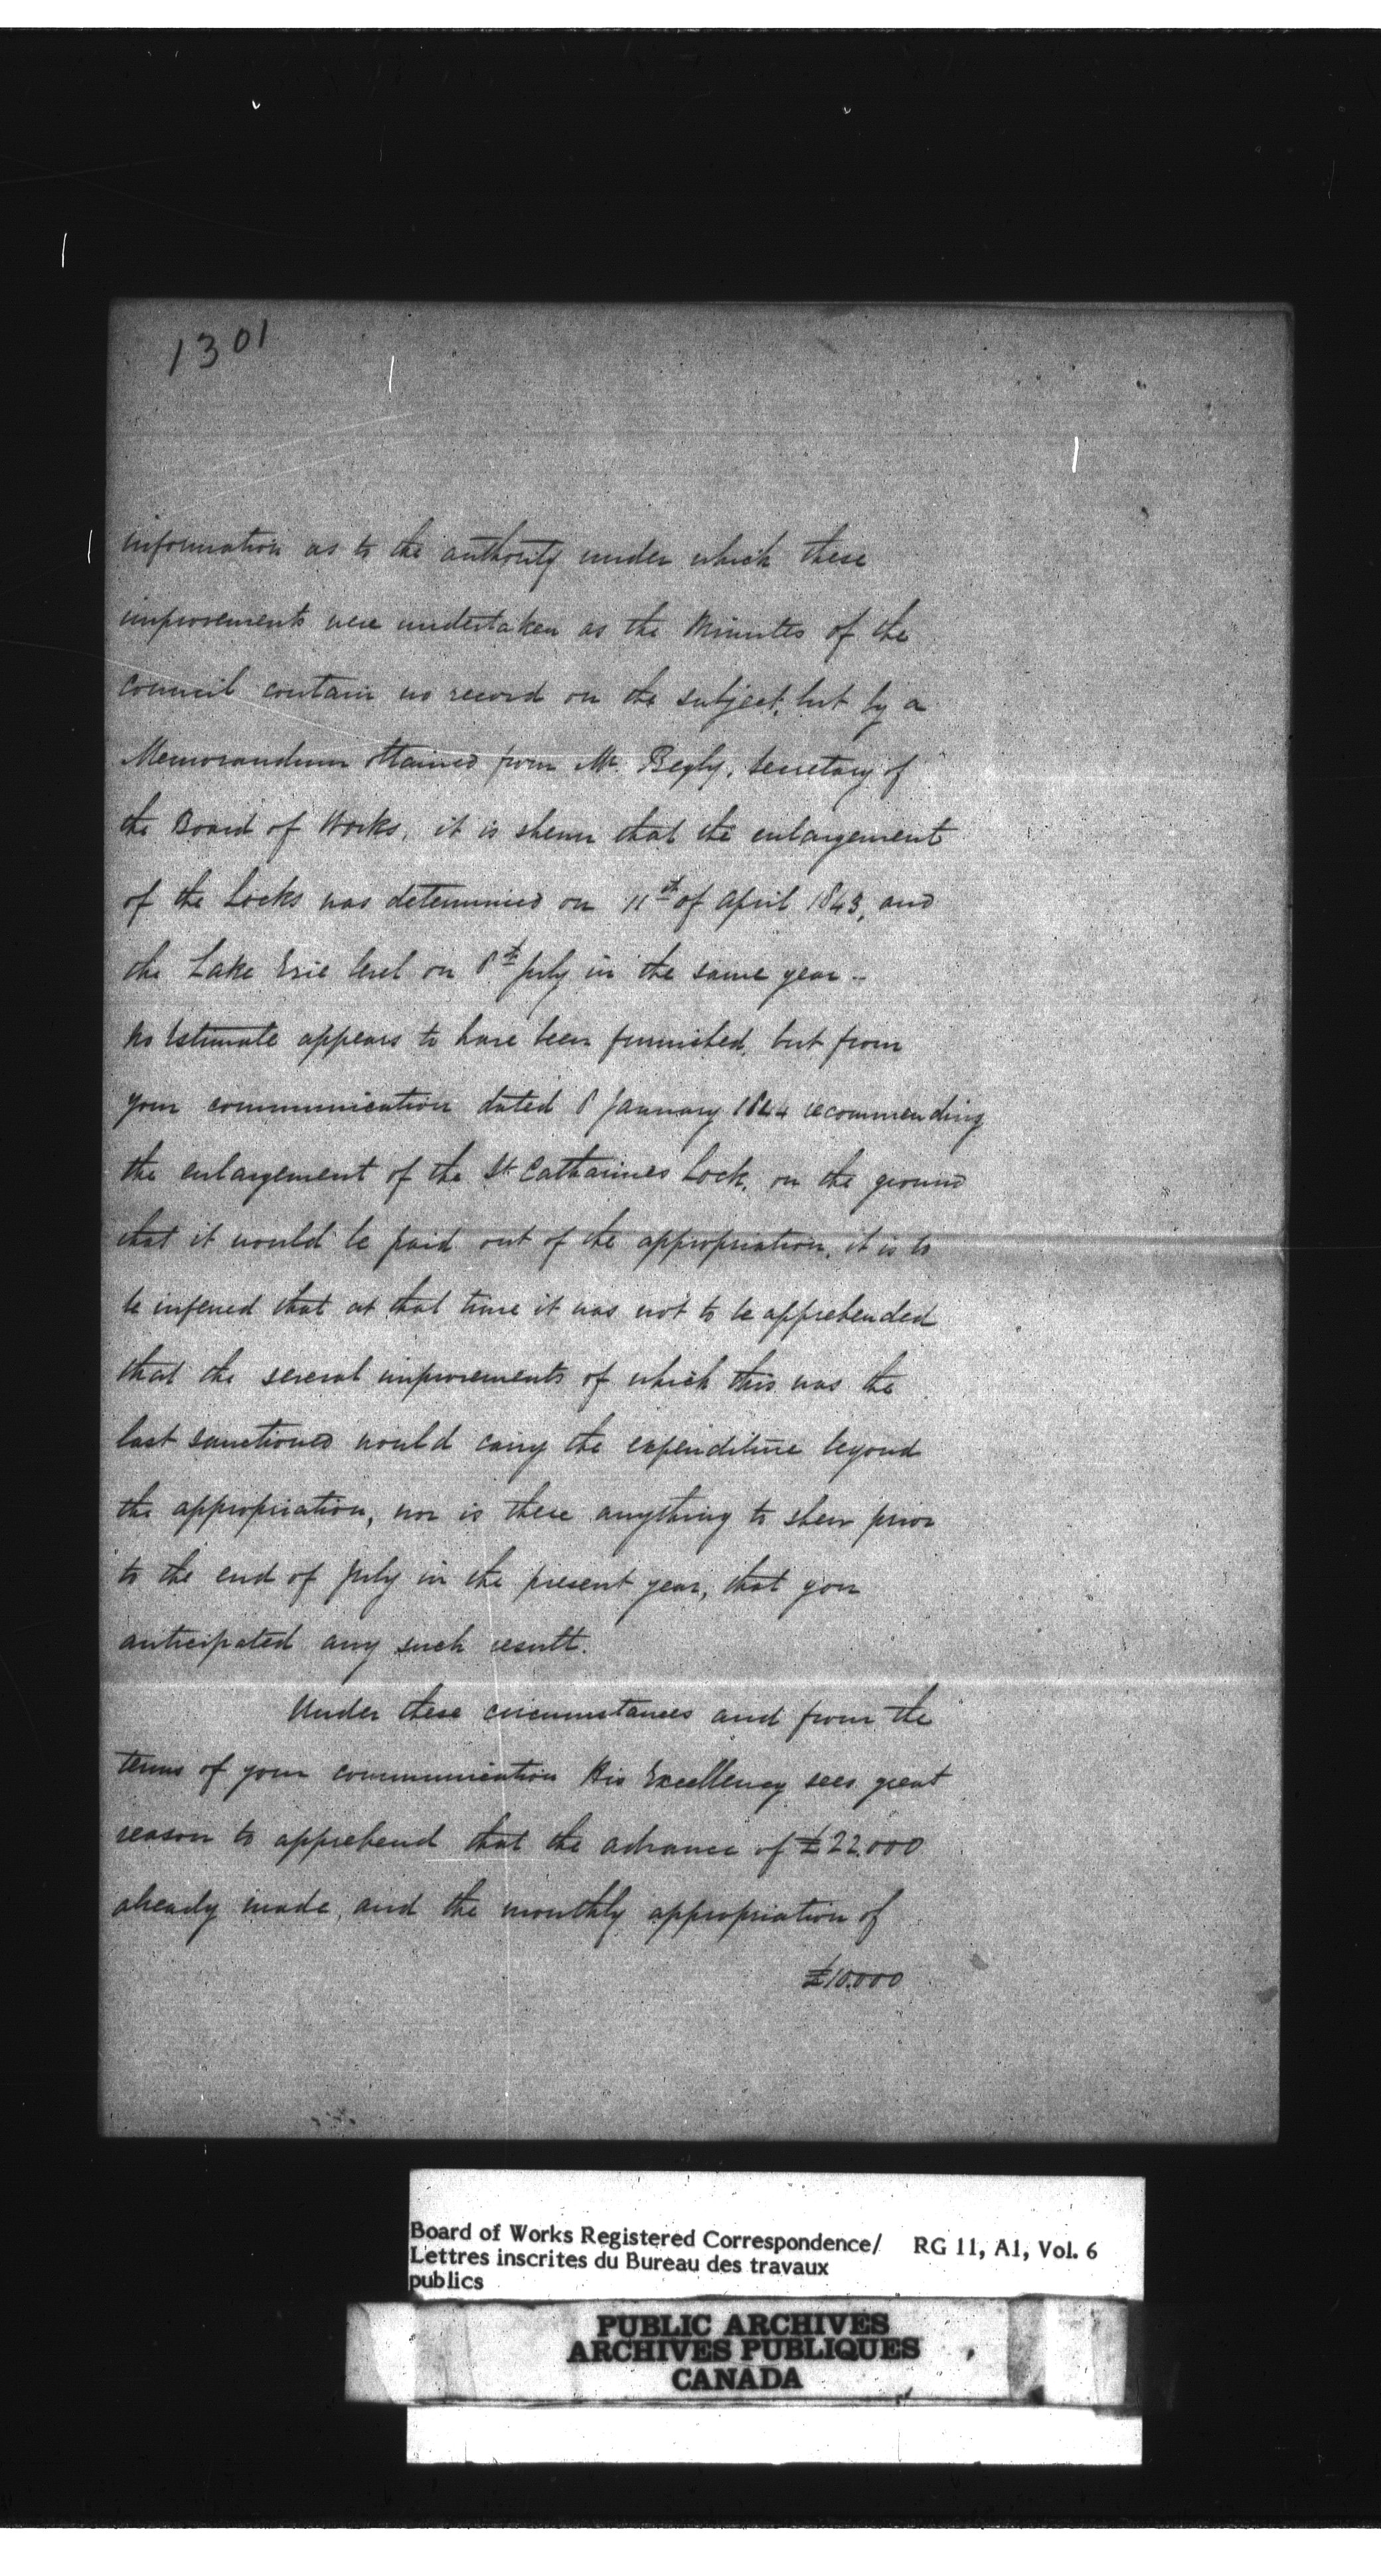 1301
information as to the authority under which these
improvements were undertaken as the Minutes of the
Council contain no record on the subject, but by a
Memorandum obtained from Mr. Begly, Secretary of
the Board of Works, it is shewn that the enlargement
of the Locks was determined on 11th of April 1843, and
the Lake Erie level on 8th July in the same year ..
No Estimate appears to have been furnished, but from
your communication dated 8 January 1844 recommending
the enlargement of the St Catharines Lock, on the ground
that it would be paid out of the appropriation, it is to
be inferred that at that time it was not to be apprehended
that the several improvements of which this was the
last sanctioned would carry the expenditure beyond
the appropriation, nor is there anything to shew prior
to the end of July in the present year, that you
anticipated any such result.
Under these circumstances and from the
terms of your communication His Excellency sees great
reason to apprehend that the advance of £22.000
already made, and the monthly appropriation of
£10.000
Board of Works Registered Correspondence/ RG 11, A1, Vol. 6
Lettres inscrites du Bureau des travaux
publics
PUBLIC ARCHIVES
ARCHIVES PUBLIQUES
CANADA